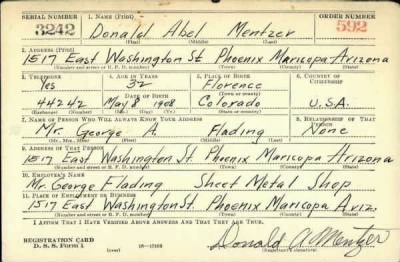 SERIAL NUMBER 1. NAME (Print) ORDER NUMBER
3242 Donald Abel Mentzer 592
(First) (Middle) (Last)
2. ADDRESS (Print)
1517 East Washington St. Phoenix Maricopa Arizona
(Number and street or R. F. D. number) (Town) (County) (State)
3. TELEPHONE 4. AGE IN YEARS 5. PLACE OF BIRTH 6. COUNTRY OF CITIZENSHIP
Yes 32 Florence
DATE OF BIRTH (Town or county)
44242 May 8 1908 Colorado U.S.A.
(Exchange) (Number) (Mo.) (Day) (Yr.) (State or country)
7. NAME OF PERSON WHO WILL ALWAYS KNOW YOUR ADDRESS 8. RELATIONSHIP OF THAT PERSON
Mr. George A. Flading None
(Mr., Mrs., Miss) (First) (Middle) (Last)
9. ADDRESS OF THAT PERSON
1517 East Washington St. Phoenix Maricopa Arizona
(Number and street or R. F. D. number) (Town) (County) (State)
10. EMPLOYER'S NAME
Mr. George Flading Sheet Metal Shop
11. PLACE OF EMPLOYMENT OR BUSINESS
1517 East Washington St. Phoenix Maricopa Ariz.
(Number and street or R. F. D. number) (Town) (County) (State)
I AFFIRM THAT I HAVE VERIFIED ABOVE ANSWERS AND THAT THEY ARE TRUE.
REGISTRATION CARD
D. S. S. Form 1 (over) 16—17105 Donald A. Mentzer
(Registrant's signature)